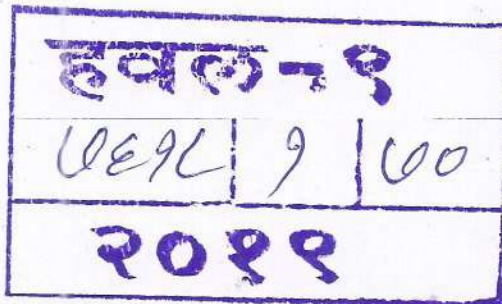 हवल-१
७६१८ | १ | ७०
२०११